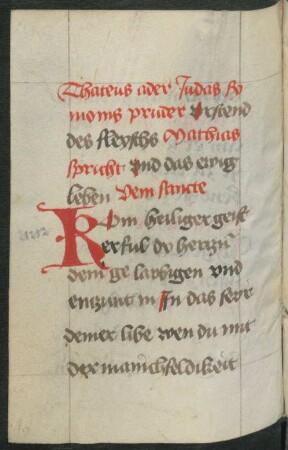 Thateus ader Judas so
monis pruder Urstend
des fleyschs Mathias
spricht Und das ewig
leben Veni sancte
Kum heiliger geist
erful dy herczn
dein ge laubigen vnd
enczunt in In das fewr
deiner libe wen du mit
der manichfeldikeit